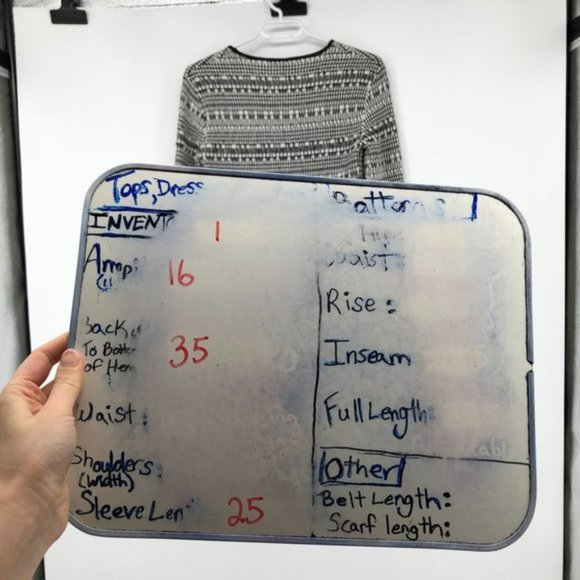 Tops, Dress
INVENT 1
Armp 16
Back
To Botto
of Hem 35
Waist:
Shoulders:
(width)
Sleeve Len 25
Waist:
Rise:
Inseam
Full Length
Other
Belt Length:
Scarf length: